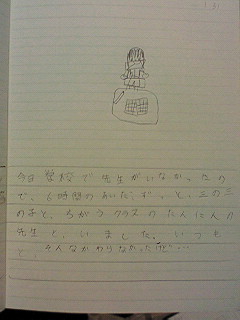 今日学校で先生がいなかったの
で、6時間のあいだ、ずっと、三の三
の子と、ちがうクラスのたんにんの
先生と、いました。いつも
と、そんなかわりなかったけど…